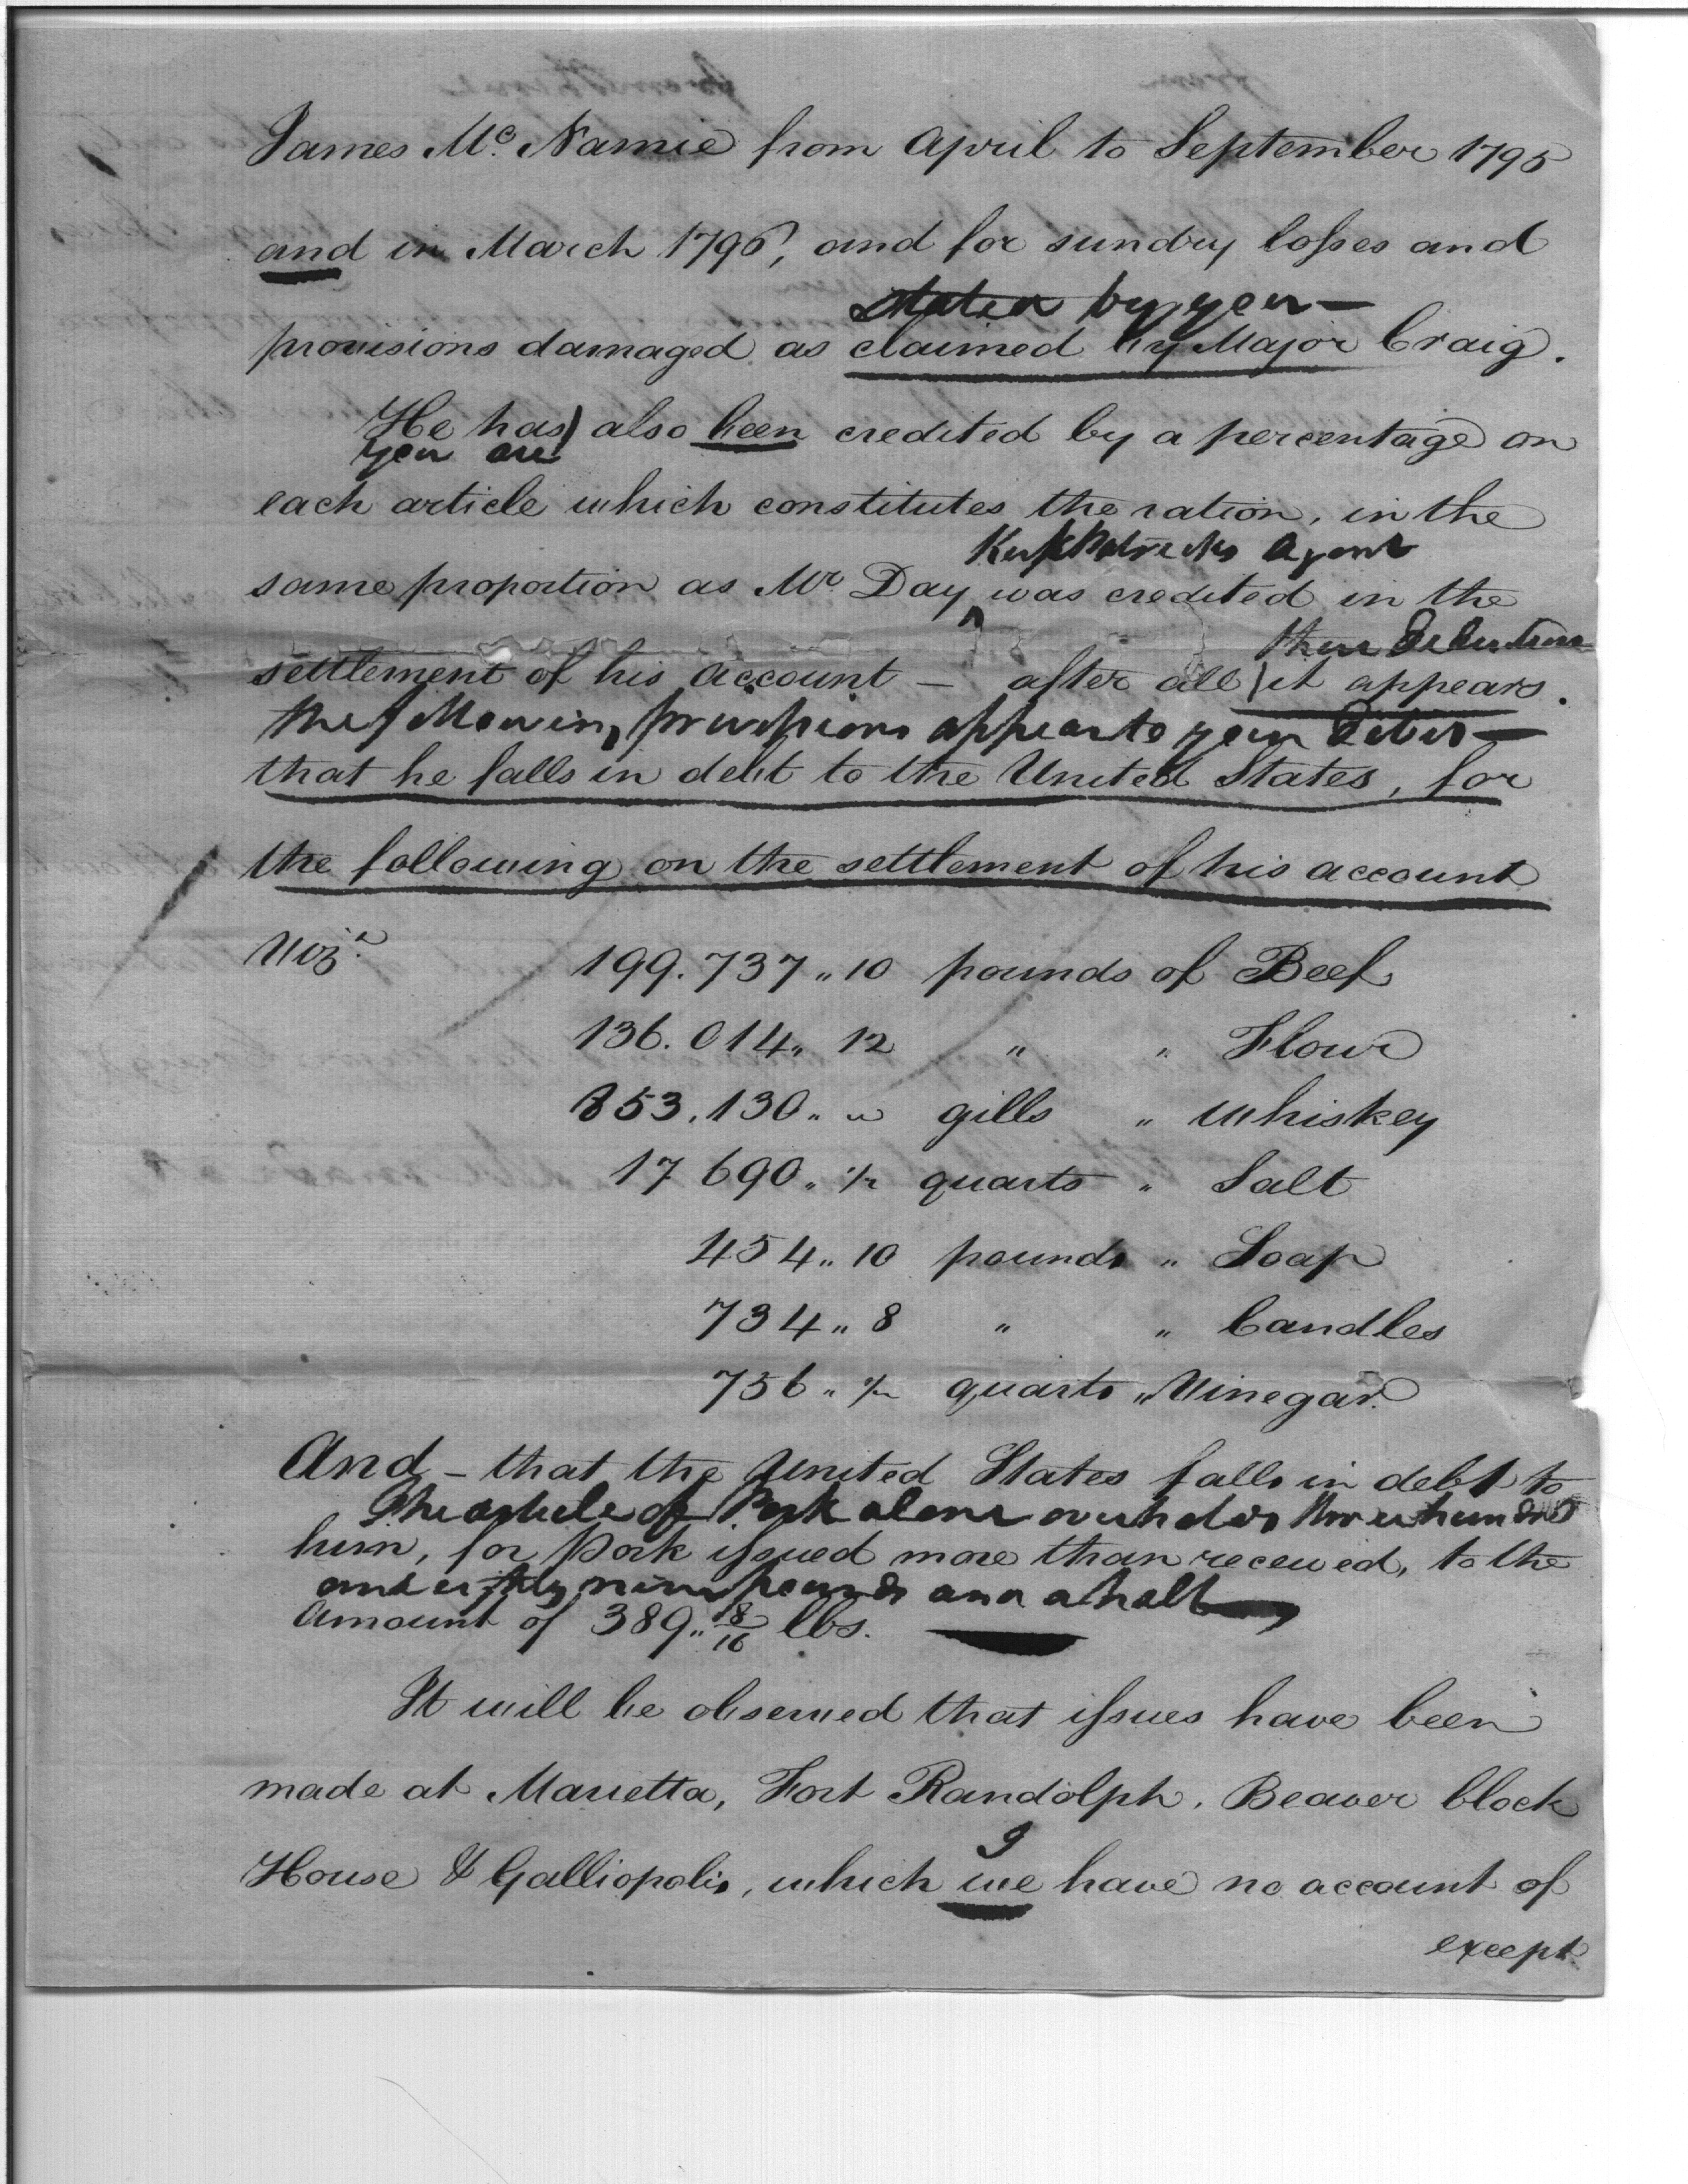 James Mc. Namie from April to September 1795
and in March 1796, and for sundry losses and
stated by you —
provisions damaged as claimed by Major Craig.
He has also been credited by a percentage on
you are
each article which constitutes the ration, in the
Kirkpatricks Agent
same proportion as Mr Day was credited in the
these Deductions
settlement of his account — after all it appears.
the following provisions appear to your Debit —
that he falls in debt to the United States, for
the following on the settlement of his account
Vizt. 199.737 „ 10 pounds of Beef
136.014 „ 12 " " Flour
853,130 „ " gills " Whiskey
17 690 „ 1/2 quarts " Salt
454 „ 10 pounds " Soap
734 „ 8 " " Candles
756 „ 1/2 quarts " Vinegar.
And — that the United States falls in debt to
The article of Pork alone three hundred
him, for Pork issued more than received, to the
and eighty nine pounds and a half
Amount of 389 „ 8/16 lbs.
It will be observed that issues have been
made at Marietta, Fort Randolph, Beaver block
I
House & Galliopolis, which we have no account of
except